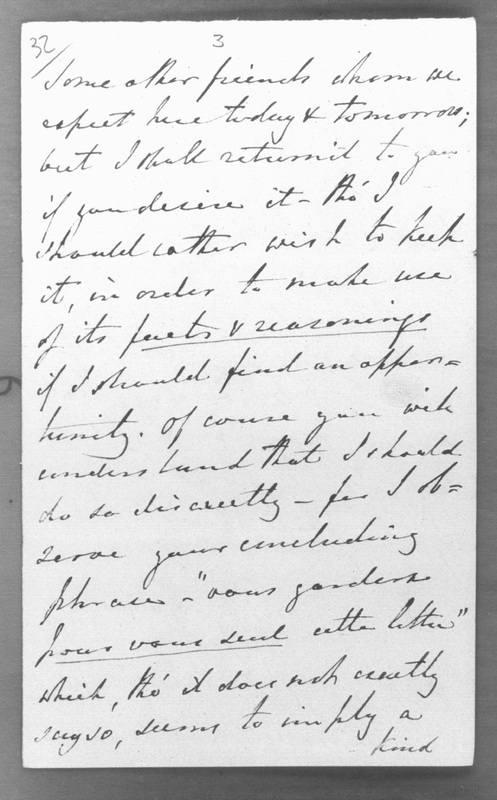 32/ 3
Some other friends whom we
expect here today & tomorrow;
but I shall return it to you
if you desire it - tho' I
should rather wish to keep
it, in order to make use
of its facts & reasonings
if I should find an oppor=
tunity. Of course you will
understand that I should
do so discreetly - for I ob=
serve your concluding
phrase - "vous garderez
pour vous seul cette lettre"
which, tho' it does not exactly
say so, seems to imply a
kind